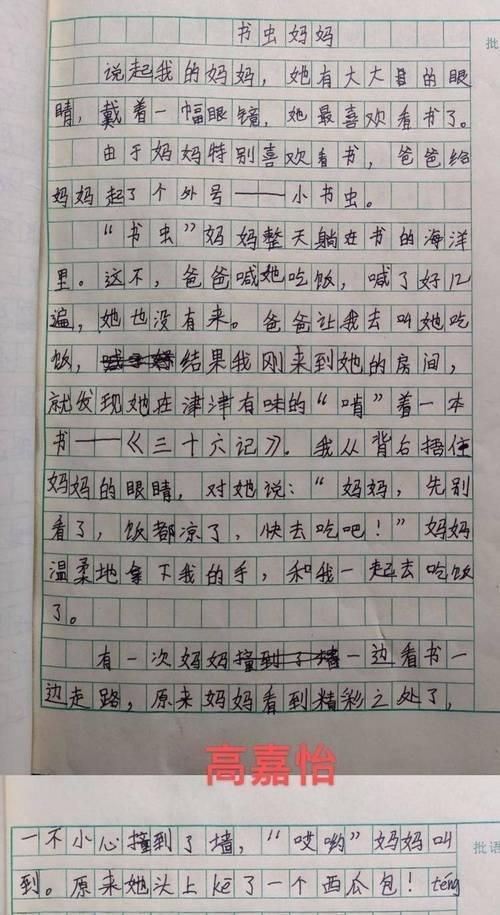 书虫妈妈
批
说起我的妈妈，她有大大的眼
睛，戴着一幅眼镜，她最喜欢看书了。
由于妈妈特别喜欢看书，爸爸给
妈妈起了个外号——小书虫。
“书虫”妈妈整天躺在书的海洋
里。这不，爸爸喊她吃饭，喊了好几
遍，她也没有来。爸爸让我去叫她吃
饭，结果我刚来到她的房间，
就发现她在津津有味的“啃”着一本
书——《三十六记》。我从背后捂住
妈妈的眼睛，对她说：“妈妈，先别
看了，饭都凉了，快去吃吧！”妈妈
温柔地拿下我的手，和我一起去吃饭
了。
有一次妈妈撞到了墙一边看书一
边走路，原来妈妈看到精彩之处了，
高嘉怡
一不小心撞到了墙，“哎哟”妈妈叫
批语
到。原来她头上kē了一个西瓜包！téng